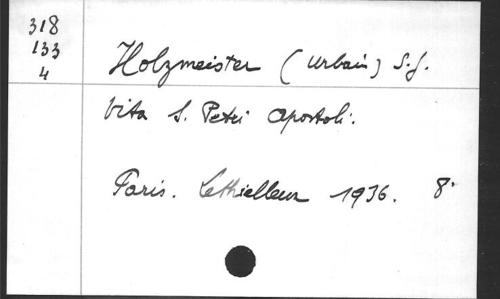 318
133
4
Holzmeister (Urbain) S.J.
Vita S. Petri apostoli.
Paris. Lethielleux 1936. 8°